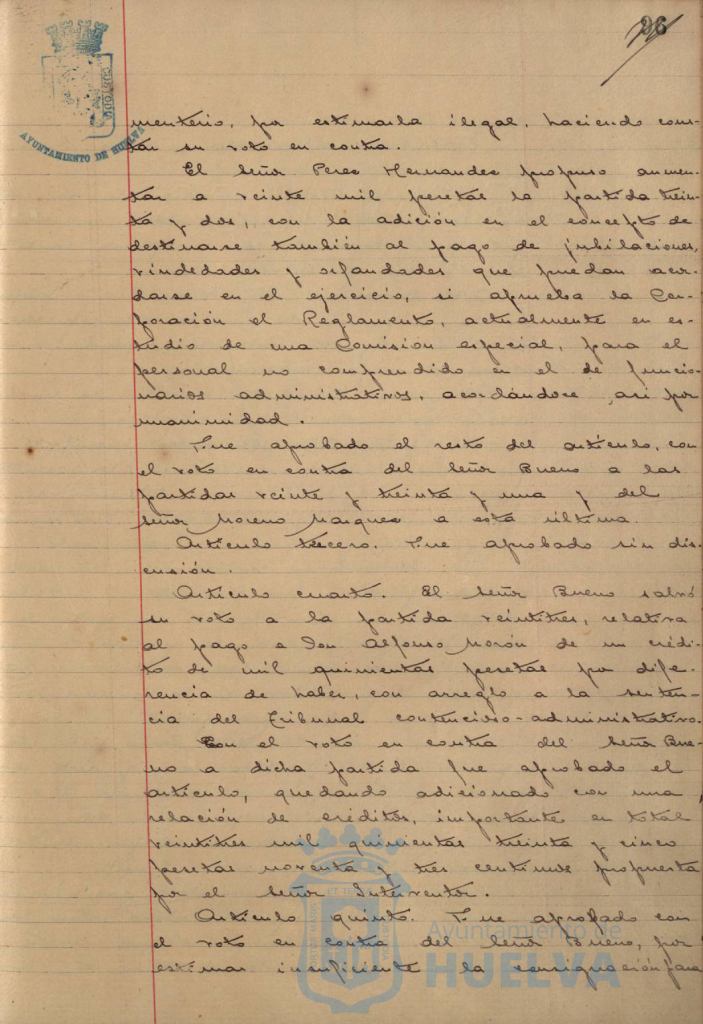 96
AYUNTAMIENTO DE HUELVA
menterio, por estimarla ilegal, haciendo cons-
tar su voto en contra.
El Señor Perez Hernandez propuso aumen-
tar a veinte mil pesetas la partida trein-
ta y dos, con la adición en el concepto de
destinarse también al pago de jubilaciones,
viudedades y orfandades que puedan acor-
darse en el ejercicio, si aprueba la Cor-
poración el Reglamento, actualmente en es-
tudio de una Comisión especial, para el
personal no comprendido en el de funcio-
narios administrativos, acordándose asi por
unanimidad.
Fue aprobado el resto del artículo, con
el voto en contra del Señor Bueno a las
partidas veinte y treinta y una y del
Señor Moreno Marquez a esta última.
Artículo tercero. Fue aprobado sin dis-
cusión.
Artículo cuarto. El Señor Bueno salvó
su voto a la partida veintitres, relativa
al pago a Don Alfonso Morón de un crédi-
to de mil quinientas pesetas por dife-
rencia de haber, con arreglo a la senten-
cia del Tribunal contencioso-administrativo.
Con el voto en contra del Señor Bue-
no a dicha partida fue aprobado el
artículo, quedando adicionado con una
relación de créditos, importante en total
veintitres mil quinientas treinta y cinco
pesetas noventa y tres centimos propuesta
por el Señor Interventor.
Artículo quinto. Fue aprobado con
el voto en contra del Señor Bueno, por
estimar insuficiente la consignación para
Ayuntamiento de
HUELVA